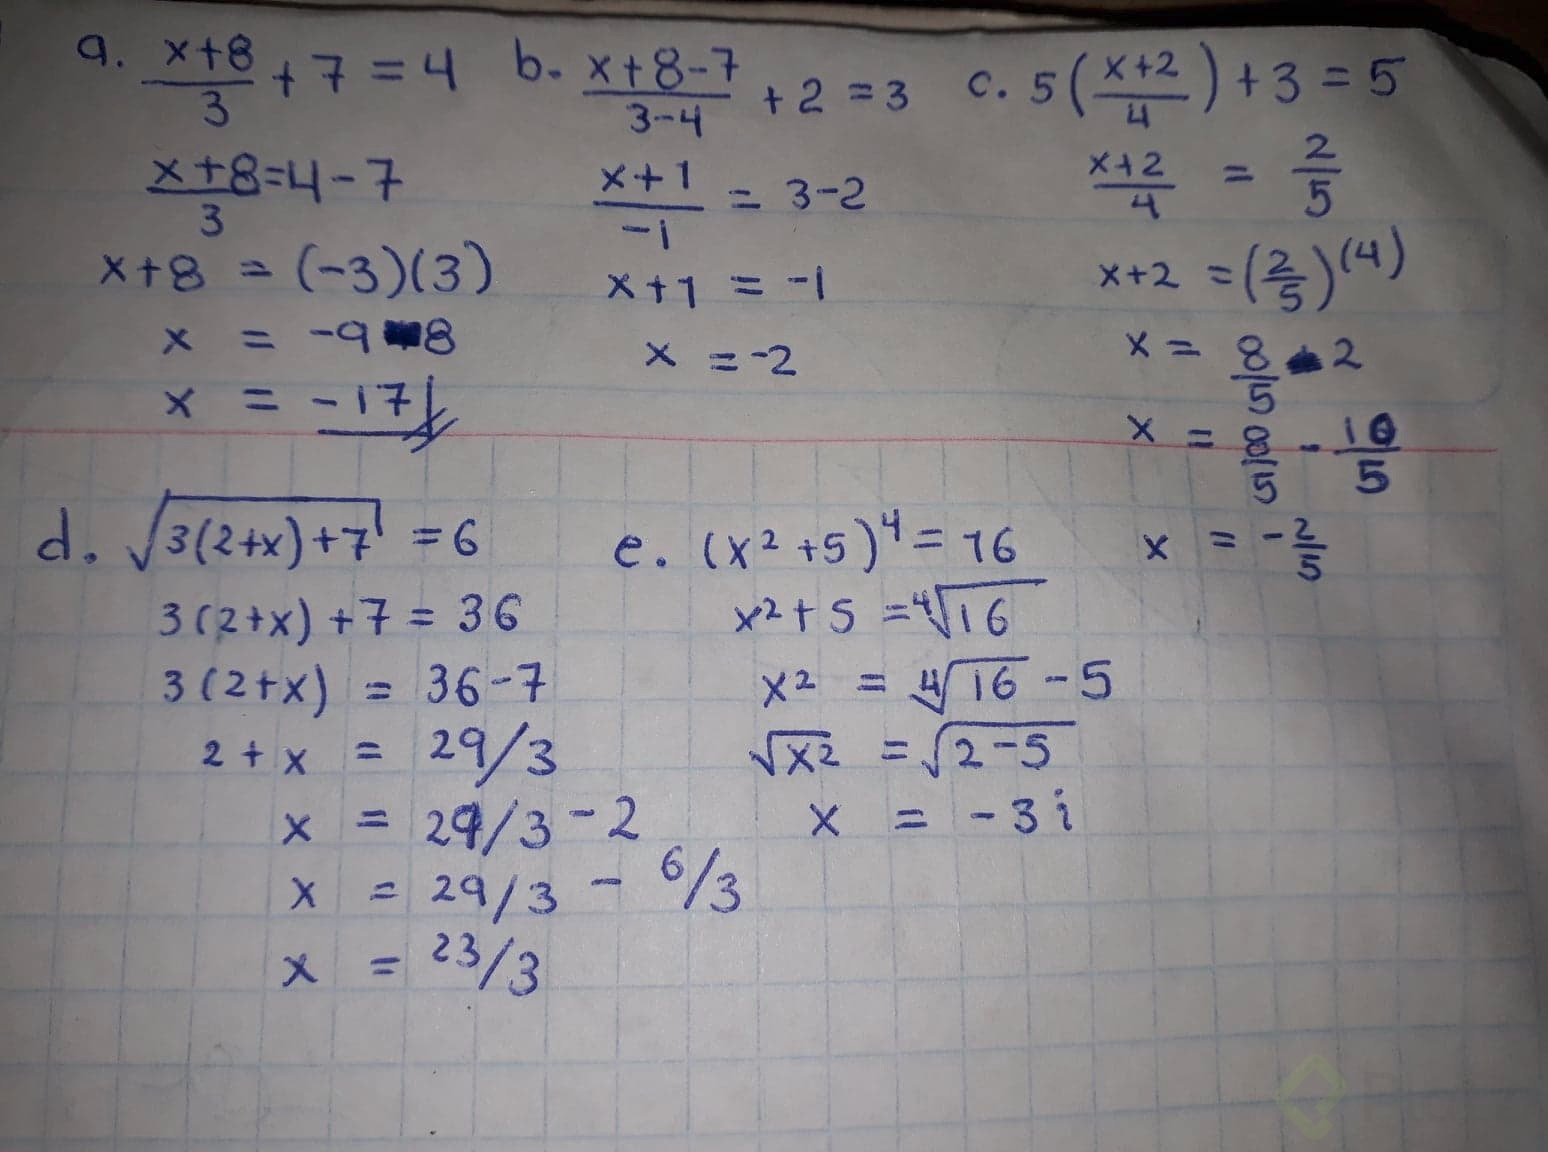 a. x+8/3 + 7 = 4
x+8/3 = 4-7
x+8 = (-3)(3)
x = -9 8
x = -17
b. x+8-7/3-4 + 2 = 3
x+1/-1 = 3-2
x+1 = -1
x = -2
c. 5(x+2/4) + 3 = 5
x+2/4 = 2/5
x+2 = (2/5)(4)
x = 8/5 - 2
x = 8/5 - 10/5
x = -2/5
d. √3(2+x)+7 = 6
3(2+x)+7 = 36
3(2+x) = 36-7
2+x = 29/3
x = 29/3 - 2
x = 29/3 - 6/3
x = 23/3
e. (x²+5)⁴ = 16
x²+5 = ⁴√16
x² = ⁴√16 - 5
√x² = √2-5
x = -3i